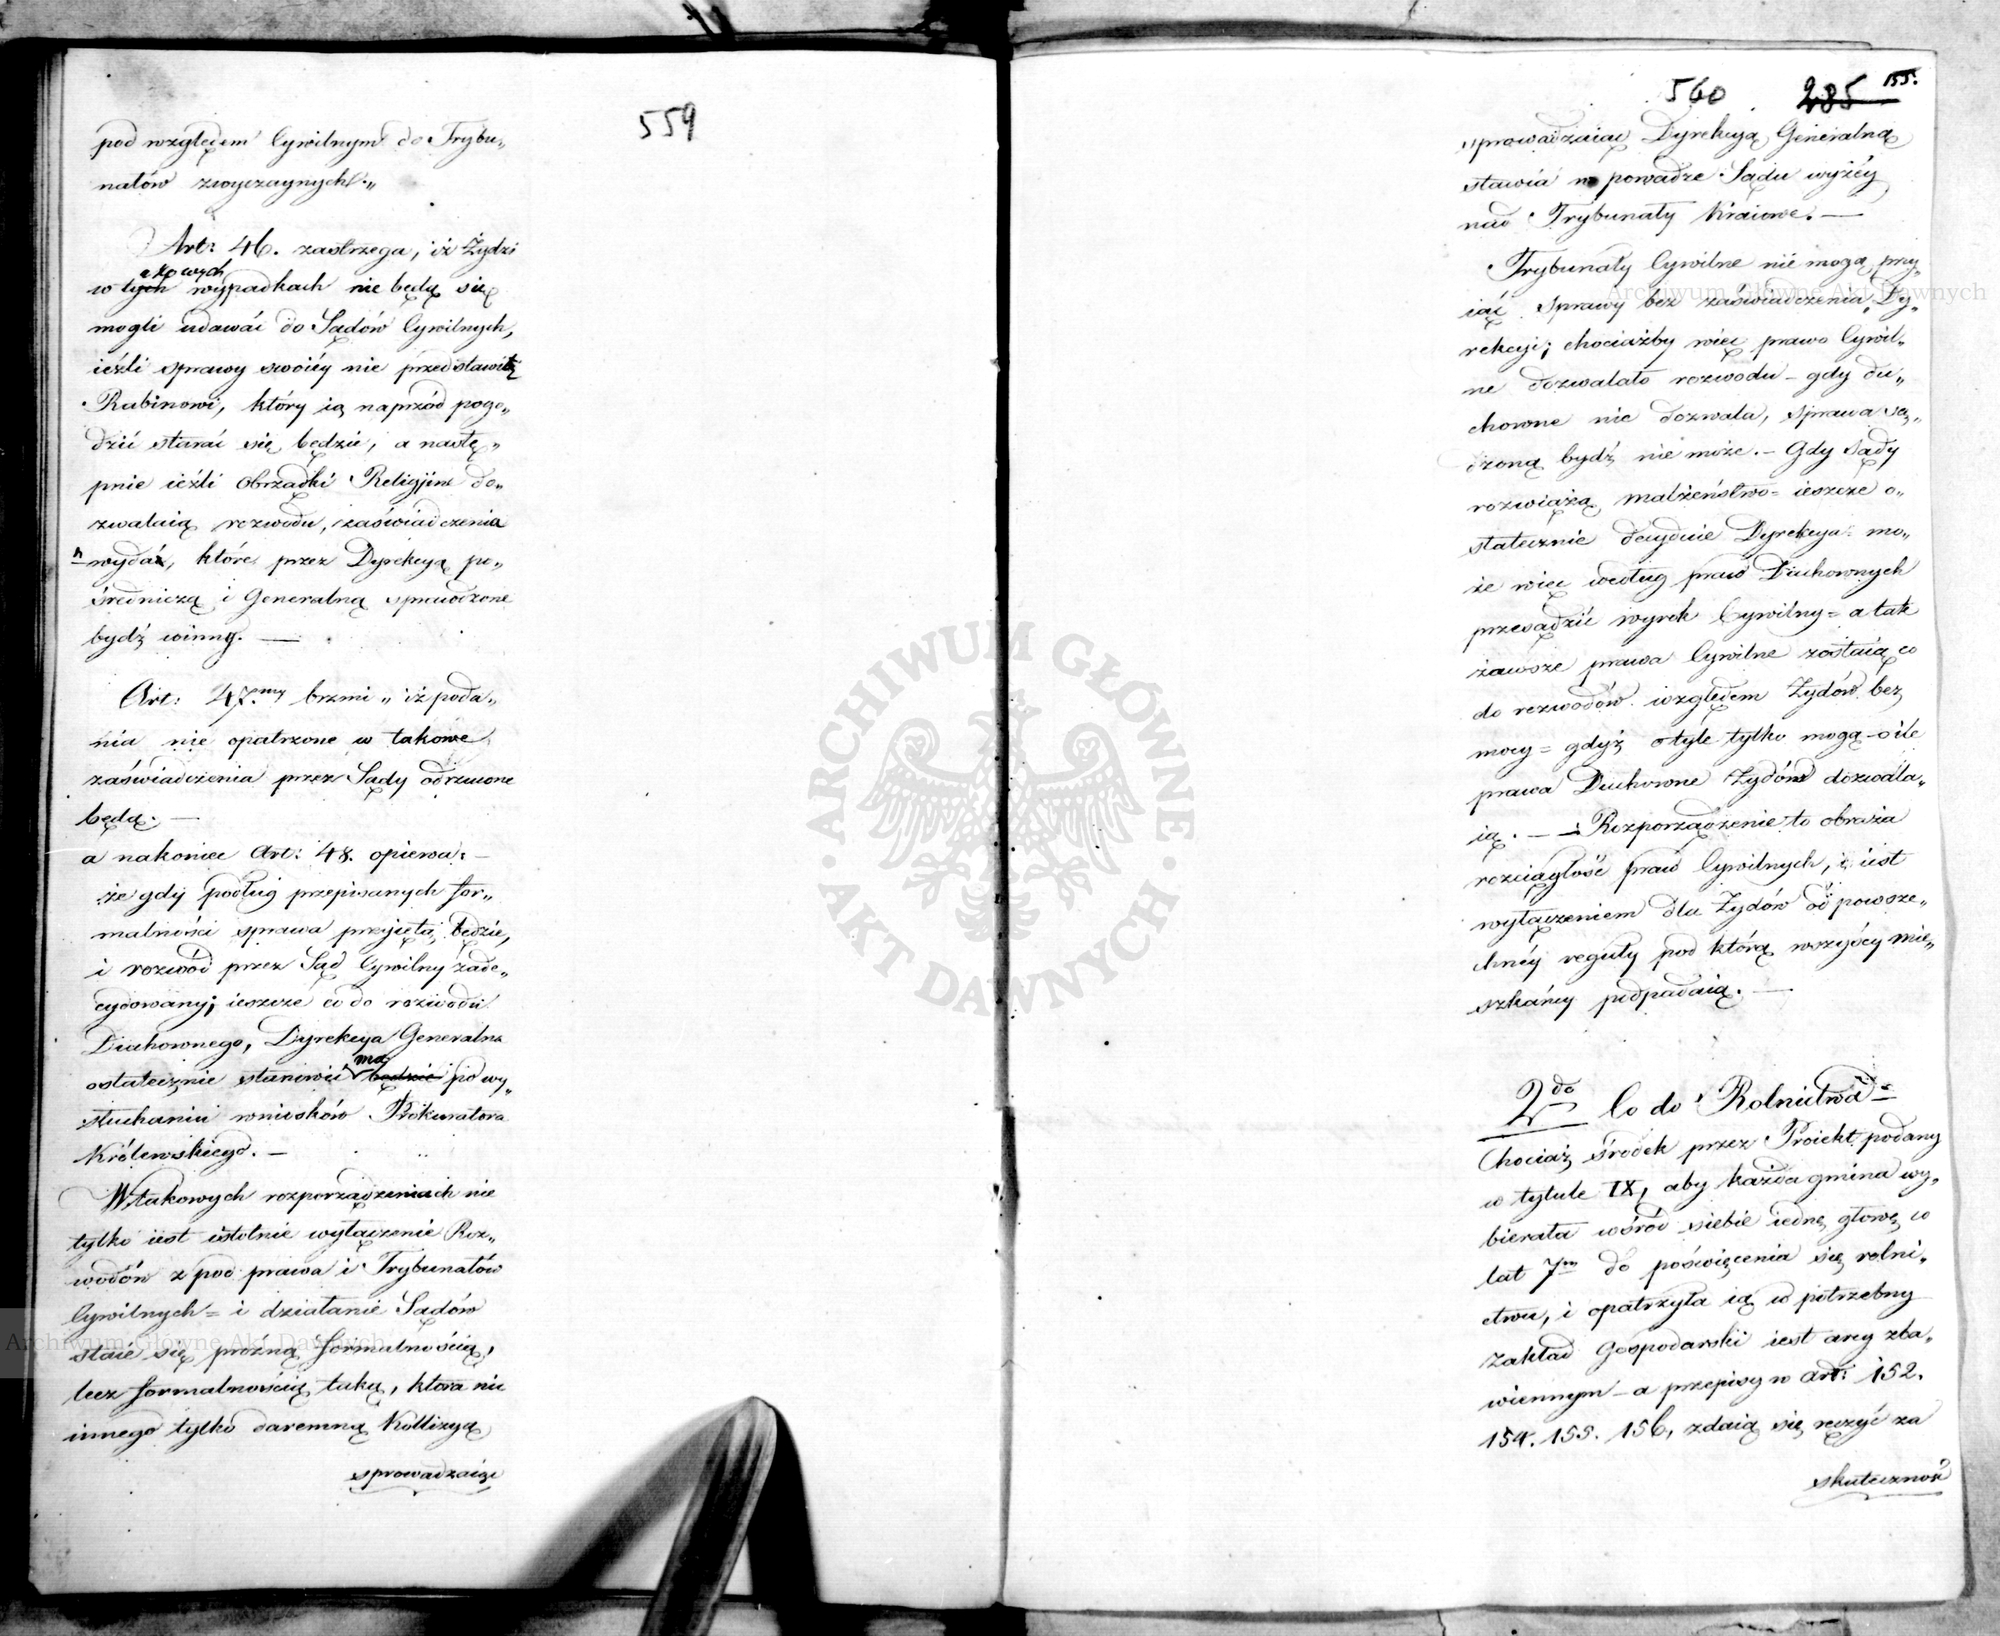 559
pod względem Cywilnym do Trybu„
nałów zwyczaynych.„
Art: 46. zastrzega, iż Żydzi
akowych
w tych wypadkach nie będą się
mogli udawać do Sądów Cywilnych,
ieżli sprawy swoiéy nie przedstawią
Rabinowi, który ią naprzód pogo„
dzić starać się będzie, a nastę„
pnie ieżli obrządki Religijne do„
zwalaią rozwodu, zaświadczenia
wyda, które przez Dyrekcyą po„
średniczą i Generalną sprawdzone
bydź winny. —
Art: 47.my brzmi „ iż poda„
nia nie opatrzone w takowe
zaświadczenia przez Sądy odrzucone
będą. —
a nakoniec Art: 48. opiewa: —
że gdy podług przepisanych for„
malności sprawa przyjęta będzie,
i rozwód przez Sąd Cywilny zade„
cydowany; ieszcze co do rozwodu
Duchownego, Dyrekcya Generalna
ma
ostatecznie stanowić będzie po wy„
słuchaniu wniosków Prokuratora
Królewskiego. —
W takowych rozporządzeniach nie
tylko iest istotnie wyłączenie Roz„
wodów z pod prawa i Trybunałów
Cywilnych = i działanie Sądów
staie się prózną formalnością,
lecz formalnością taką, która nic
innego tylko daremną Kollizyą
sprowadzaiąc
560 285 155.
sprowadzaiąc Dyrekcyą Generalną
stawia w powadze Sądu wyżéy
nad Trybunały Kraiowe. —
Trybunały Cywilne nie mogą przy„
iąć sprawy bez zaświadczenia Dy„
rekcyi; chociażby więc prawo Cywil„
ne dozwalało rozwodu – gdy du„
chowne nie dozwala, sprawa są„
dzoną bydź nie może. – Gdy Sądy
rozwiążą małżeństwo = ieszcze o„
statecznie decyduie Dyrekcya: mo„
że więc według praw Duchownych
przesądzić wyrok Cywilny = a tak
zawsze prawa Cywilne zostaią co
do rozwodów względem Żydów bez
mocy = gdyż o tyle tylko mogą – o ile
prawa Duchowne Żydów dozwala„
ią. — Rozporządzenie to obraża
rozciągłość praw Cywilnych, i iest
wyłączeniem dla Żydów od powsze„
chnéy reguły pod którą wszyscy mie„
szkańcy podpadaią. —
2do Co do Rolnictwa =
Chociaż środek przez Proiekt podany
w tytule IX, aby każda gmina wy„
bierała wśród siebie iednę głowę w
lat 7m do poświęcenia się rolni„
ctwu, i opatrzyła ią w potrzebny
Zakład Gospodarski iest arcy zba„
wiennym – a przepisy w art: 152.
154. 155. 156, zdaią się ręczyć za
skuteczność
Archiwum Główne Akt Dawnych
Archiwum Główne Akt Dawnych
ARCHIWUM GŁÓWNE
AKT DAWNYCH